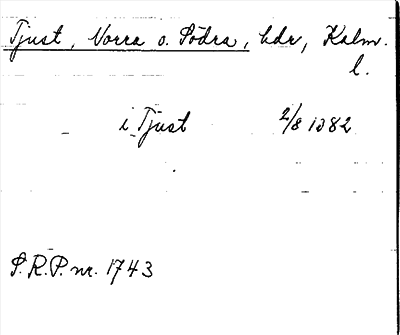 Tjust, Norra o. Södra, hdr, Kalm.
l.
i Tjust 2/8 1382
S.R.P. nr. 1743